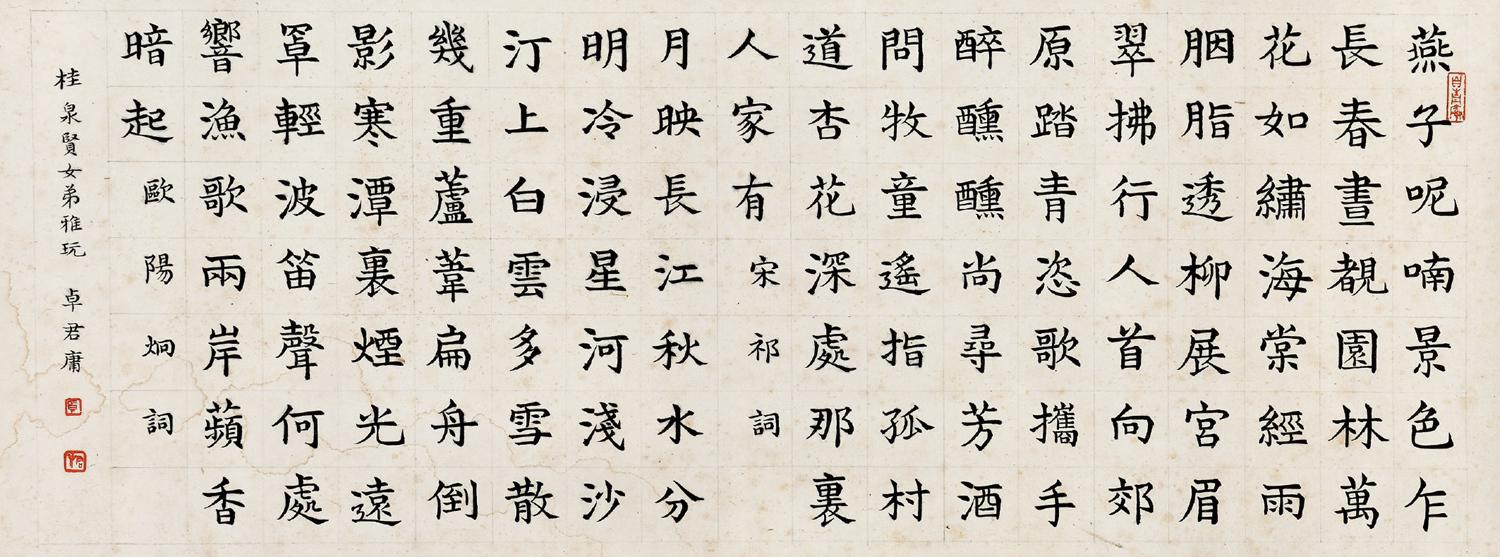 自青榭
燕子呢喃景色乍
長春晝覩園林萬
花如繡海棠經雨
胭脂透柳展宮眉
翠拂行人首向郊
原踏青恣歌攜手
醉醺醺尚尋芳酒
問牧童遙指孤村
道杏花深處那裏
人家有 宋祁詞
月映長江秋水分
明冷浸星河淺沙
汀上白雲多雪散
幾重蘆葦扁舟倒
影寒潭裏煙光遠
罩輕波笛聲何處
響漁歌兩岸蘋香
暗起 歐陽炯詞
桂泉賢女弟雅玩 卓君庸